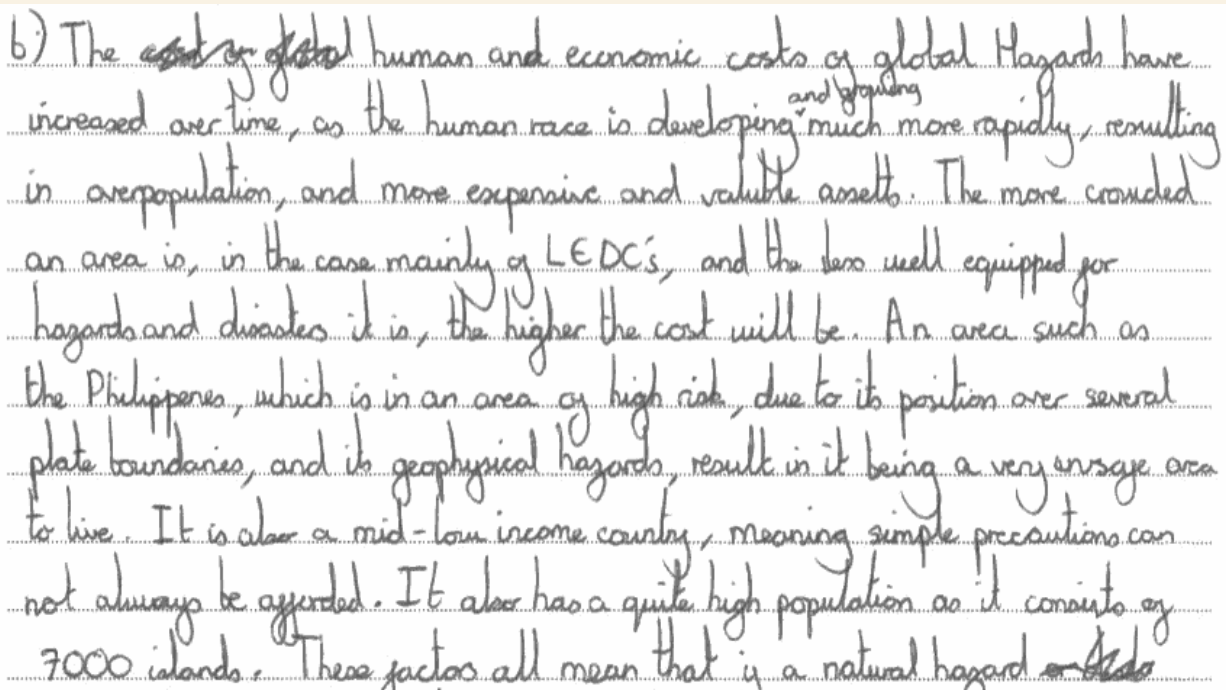 b) The human and economic costs of global Hazards have
and growing
increased over time, as the human race is developing much more rapidly, resulting
in overpopulation, and more expensive and valuble assetts. The more crowded
an area is, in the case mainly of LEDC's, and the less well equipped for
hazards and disasters it is, the higher the cost will be. An area such as
the Philippenes, which is in an area of high risk, due to its position over several
plate boundaries, and its geophysical hazards, result in it being a very unsafe area
to live. It is also a mid-low income country, meaning simple precautions can
not always be afforded. It also has a quite high population as it consists of
7000 islands. These factors all mean that if a natural hazard